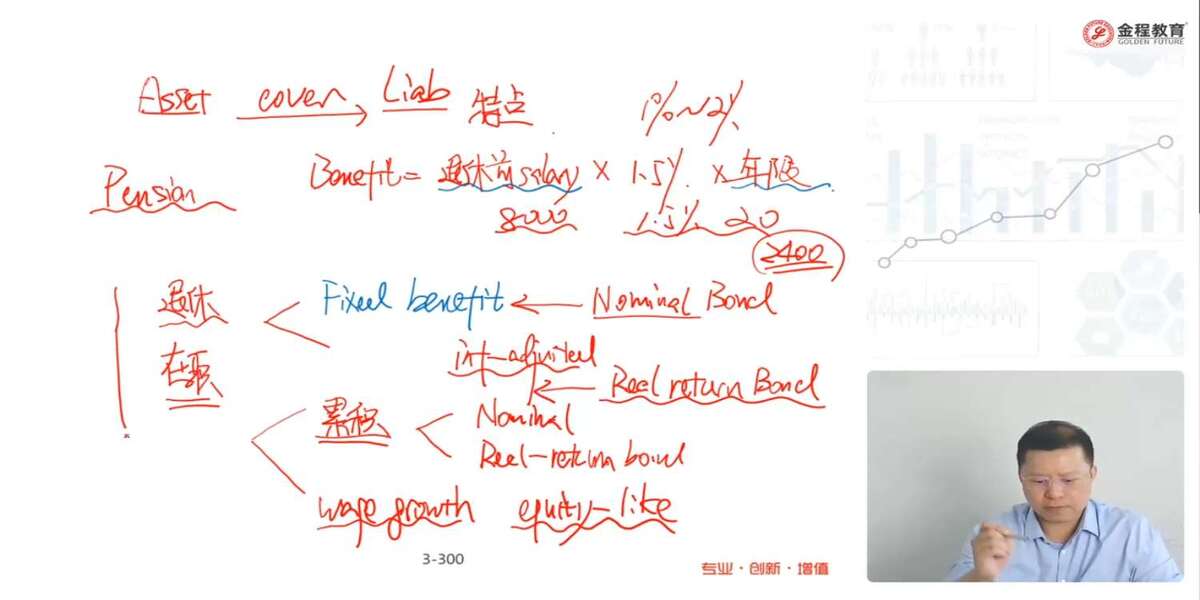 金程教育
GOLDEN FUTURE
Asset cover Liab 特点 1%~2%
Pension Benefit = 退休前salary × 1.5% × 年限
8000 1.5% 20
2400
退休 Fixed benefit ← Nominal Bond
在职 inf-adjusted
← Real return Bond
累积 Nominal
Real-return bond
wage growth equity-like
3-300
专业·创新·增值